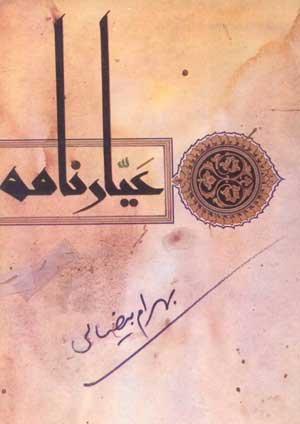 عیّارنامه
بهرام بیضائی